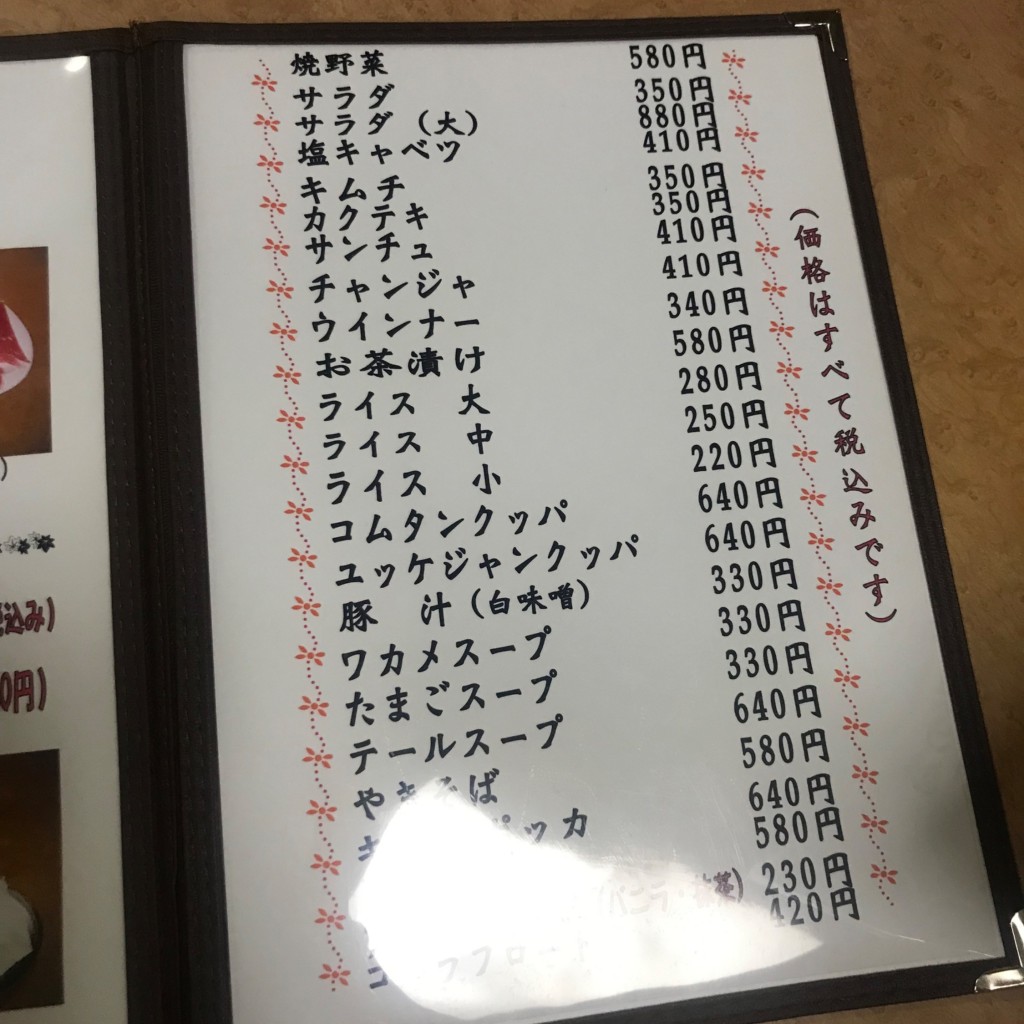 焼野菜 580円
サラダ 350円
サラダ（大） 880円
塩キャベツ 410円
キムチ 350円
カクテキ 350円
サンチュ 410円
チャンジャ 410円
ウインナー 340円
お茶漬け 580円
ライス 大 280円
ライス 中 250円
ライス 小 220円
コムタンクッパ 640円
ユッケジャンクッパ 640円
豚 汁（白味噌） 330円
ワカメスープ 330円
たまごスープ 330円
テールスープ 640円
やきそば 580円
640円
580円
（バニラ・抹茶） 230円
420円
（価格はすべて税込みです）
込み）
0円）